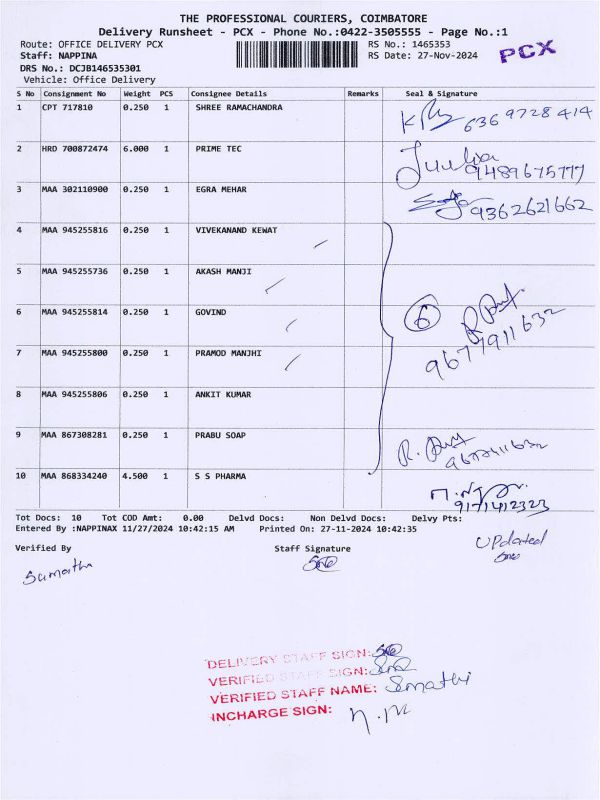 THE PROFESSIONAL COURIERS, COIMBATORE
Delivery Runsheet - PCX - Phone No.:0422-3505555 - Page No.:1
Route: OFFICE DELIVERY PCX RS No.: 1465353
Staff: NAPPINA RS Date: 27-Nov-2024 PCX
DRS No.: DCJB146535301
Vehicle: Office Delivery
S No Consignment No Weight PCS Consignee Details Remarks Seal & Signature
1 CPT 717810 0.250 1 SHREE RAMACHANDRA 6369728414
2 HRD 700872474 6.000 1 PRIME TEC 9489675777
3 MAA 302110900 0.250 1 EGRA MEHAR 9362621662
4 MAA 945255816 0.250 1 VIVEKANAND KEWAT
5 MAA 945255736 0.250 1 AKASH MANJI
6 MAA 945255814 0.250 1 GOVIND 6
7 MAA 945255800 0.250 1 PRAMOD MANJHI 9677911632
8 MAA 945255806 0.250 1 ANKIT KUMAR
9 MAA 867308281 0.250 1 PRABU SOAP
10 MAA 868334240 4.500 1 S S PHARMA
Tot Docs: 10 Tot COD Amt: 0.00 Delvd Docs: Non Delvd Docs: Delvy Pts:
Entered By :NAPPINAX 11/27/2024 10:42:15 AM Printed On: 27-11-2024 10:42:35
Verified By Staff Signature Updated
Sumathi
DELIVERY STAFF SIGN:
VERIFIED STAFF SIGN:
VERIFIED STAFF NAME: Sumathi
INCHARGE SIGN: N.M